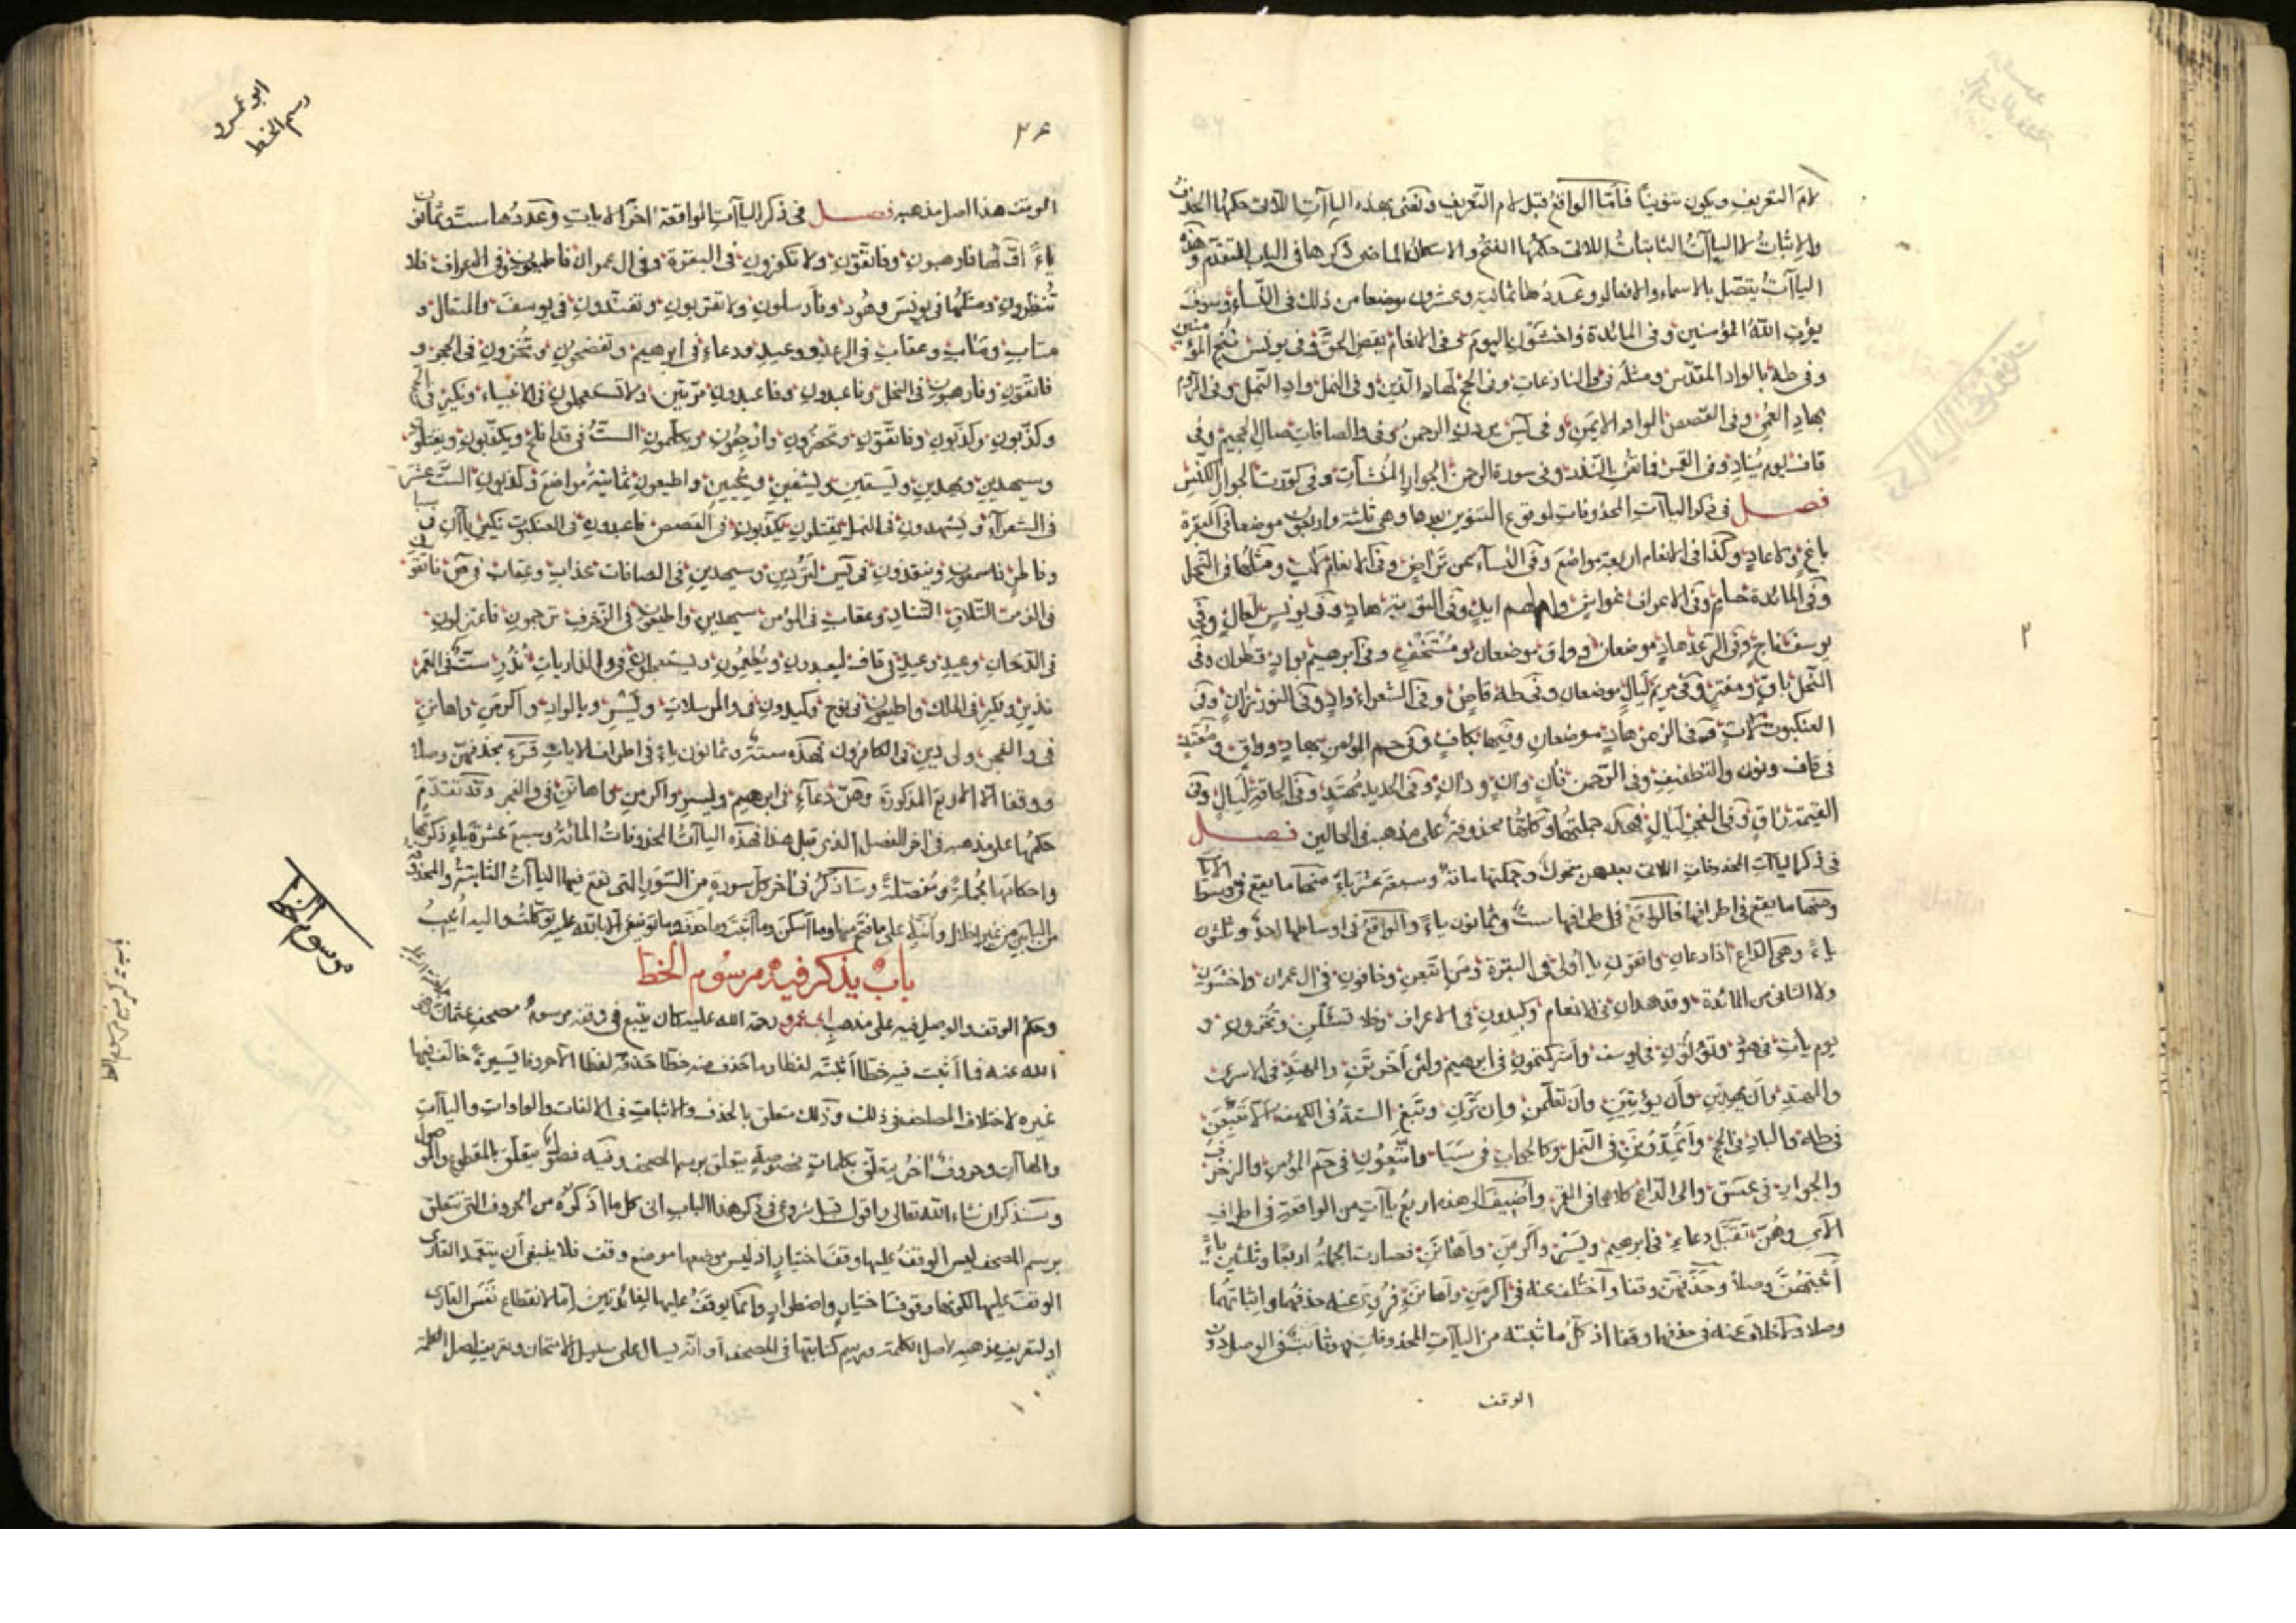 لام التعريف ويكون تنوينًا فأما الواقع قبل لام التعريف ونعنى بهذه الياآت اللاتى حكمها الحذف
والإثبات لا الياآت الثابتات اللاتى حكمها الفتح والاسكان الماضى ذكرها فى الباب المتقدم وهذه
الياآت يتصل بالاسماء والافعال وعددها ثمانية وعشرون موضعا من ذلك فى النساء وسوف
يؤت الله المؤمنين وفى المائدة واخشون اليوم وفى الانعام يقض الحق وفى يونس ننج المؤمنين
وفى طه بالواد المقدس ومثله فى والنازعات وفى الحج لهاد الذين وفى النمل واد النمل وفى الروم
بهاد العمى وفى القصص الواد الايمن وفى يس يردن الرحمن وفى والصافات صال الجحيم وفى
قاف يوم يناد وفى القمر فما تغن النذر وفى سورة الرحمن الجوار المنشآت وفى كورت الجوار الكنس
فصل فى ذكر الياآت المحذوفات لوقوع التنوين بعدها وهى ثلثة واربعون موضعا فى البقرة
باغ ولا عاد وكذا فى الانعام اربعة مواضع وفى النساء عن تراض وفى الانعام لآت ومثلها فى النحل
وفى المائدة حام وفى الاعراف غواش وام لهم ايد وفى التوبة هار وفى يونس لعال وفى
يوسف ناج وفى الرعد هاد موضعان وواق موضعان ومستخف وفى ابرهيم بواد قطران وفى
النحل باق ومفتر وفى مريم ليال موضعان وفى طه قاض وفى الشعراء واد وفى النور زان وفى
العنكبوت لآت وفى الزمر هاد موضعان وفيها بكاف وفى حم المؤمن بهاد وواق ومعتد
فى قاف ونون والتطفيف وفى الرحمن فان وآن ودان وفى الحديد مهتد وفى الحاقة ليال وفى
القيمة راق وفى الفجر ليال فهذه جملتها وكلها محذوفة على مذهبه فى الحالين فصل
فى ذكر الياآت المحذوفات اللاتى بعدهن متحرك وجملتها مائة وسبعة عشر ياء منها ما يقع فى وسط الآيات
ومنها ما يقع فى اطرافها فالواقع فى اطرافها ست وثمانون ياءً والواقع فى اوساطها احد وثلثون
ياءً وهى الداع اذا دعان واتقون يا اولى فى البقرة ومن اتبعن وخافون فى ال عمران واخشون
ولا الثانى من المائدة وقد هدان فى الانعام وكيدون فى الاعراف وفلا تسئلن وتخزون و
يوم يأت فى هود وتؤتون فى يوسف واشركتمون فى ابرهيم ولئن اخرتن والمهتد فى الاسرى
والمهتد وان يهدين وان يؤتين وان تعلمن وان ترن ونبغ الستة فى الكهف الا تتبعن
فى طه والباد فى الحج واتمدونن فى النمل وكالجواب فى سبا واتبعون فى حم المؤمن والزخرف
والجوار فى عسق والى الداع كلاهما فى القمر واضيف الى هذه اربع ياآت من الواقعة فى اطراف
الآى وهن تقبل دعاء فى ابرهيم ويسر واكرمن واهانن فصارت الجملة اربعًا وثلثين ياءً
أثبتهن وصلاً وحذفهن وقفا واختلف عنه فى اكرمن واهانن فروى عنه حذفهما واثباتهما
وصلا ولا خلاف عنه فى حذفهما وقفا اذ كل ما ثبته من الياآت المحذوفات فهو ثابت فى الوصل دون
الوقف
ابو عمرو
رسم الخط
الوقف هذا اصل مذهبه فصل فى ذكر الياآت الواقعة اخر الايات وعددها ست وثمانون
ياءً اولها فارهبون وفاتقون ولا تكفرون فى البقرة وفى ال عمران فاطيعون وفى الاعراف فلا
تنظرون ومثلها فى يونس وهود وفارسلون ولا تقربون وتفندون فى يوسف والمتعال و
متاب ومآب وعقاب فى الرعد ووعيد ودعاء فى ابرهيم وتفضحون وتخزون فى الحجر و
فاتقون وفارهبون فى النحل وفاعبدون وفاعبدون مرتين ولا تستعجلون فى الانبياء ونكير فى الحج
وكذبون وكذبون وفاتقون وتحضرون وارجعون وتكلمون الست فى قد افلح ويكذبون ويقتلون
وسيهدين ويهدين ويسقين ويشفين ويحيين واطيعون ثمانية مواضع وكذبون الست عشر
فى الشعرآء وتشهدون فى النمل يقتلون يكذبون فى القصص فاعبدون فى العنكبوت نكير ياآن فى سبا
وفاطر فاسمعون وينقذون فى يس لتردين وسيهدين فى الصافات عذاب وعقاب فى ص فاتقون
فى الزمر التلاق التناد وعقاب فى المؤمن سيهدين واطيعون فى الزخرف ترجمون فاعتزلون
فى الدخان وعيد وعيد فى قاف ليعبدون ويطعمون ويستعجلون فى والذاريات نذر ست فى القمر
نذير ونكير فى الملك واطيعون فى نوح وكيدون فى والمرسلات ويسر وبالواد واكرمن واهانن
فى والفجر ولى دين فى الكافرون فهذه ستة وثمانون ياءً فى اطراف الايات قرء بحذفهن وصلا
ووقفا الا الاربع المذكورة وهن دعاء فى ابرهيم ويسر واكرمن واهانن فى والفجر وقد تقدم
حكمها على مذهبه فى اخر الفصل الذى قبل هذا فهذه الياآت المحذوفات المائة وسبع عشرة ياء ذكرتها
واحكامها مجملة ومفصلة وساذكر فى اخر كل سورة من السور التى تقع فيها الياآت الثابتة والمحذوفة
من البابين من غير اخلال وانبه على ما فتح منها وما اسكن وما اثبت وما حذف وما توفيقى الا بالله عليه توكلت واليه انيب
باب يذكر فيه مرسوم الخط
وحكم الوقف والوصل فيه على مذهب ابى عمرو رحمة الله عليه كان يتبع فى وقفه مرسوم مصحف عثمان رضى
الله عنه فما اثبت فيه خطا اثبته لفظا وما حذف منه خطا حذفه لفظا الا حروفا يسيرة خالف فيها
غيره لاختلاف المصاحف فى ذلك وذلك متعلق بالحذف والاثبات فى الالفات والواوات والياآت
والهاآت وحروف اخر يتعلق بكلمات مخصوصة يتعلق برسم المصحف وفيه فصل يتعلق بالمقطوع والموصول
وسنذكر ان شاء الله تعالى واقول قبل شروعى فى ذكر هذا الباب ان كل ما اذكره من الحروف التى تتعلق
برسم المصحف ليس الوقف عليها وقف اختيار اذ ليس موضعها موضع وقف فلا ينبغى ان يتعمد القارى
الوقف عليها لكونها وقوفا اختيار واضطرار وانما يوقف عليها لفائدتين اما لانقطاع نفس القارى
او لتعريف مذهبه لاصل الكلمة ورسم كتابتها فى المصحف او انه يسال على سبيل الامتحان وتعريف اصل الكلمة
مرسوم الخط